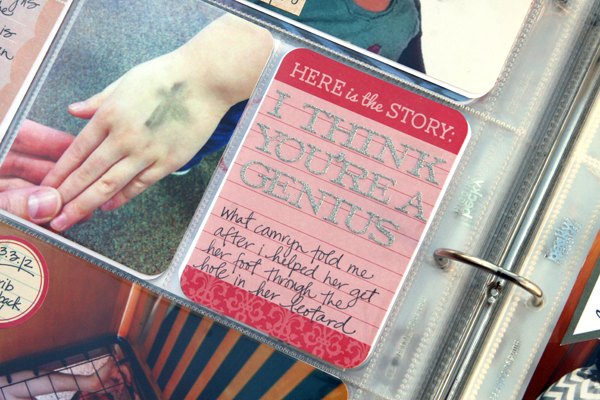 HERE is the STORY:
I THINK
YOU'RE A
GENIUS
what camryn told me
after i helped her get
her foot through the
hole in her leotard
3.3.12
back